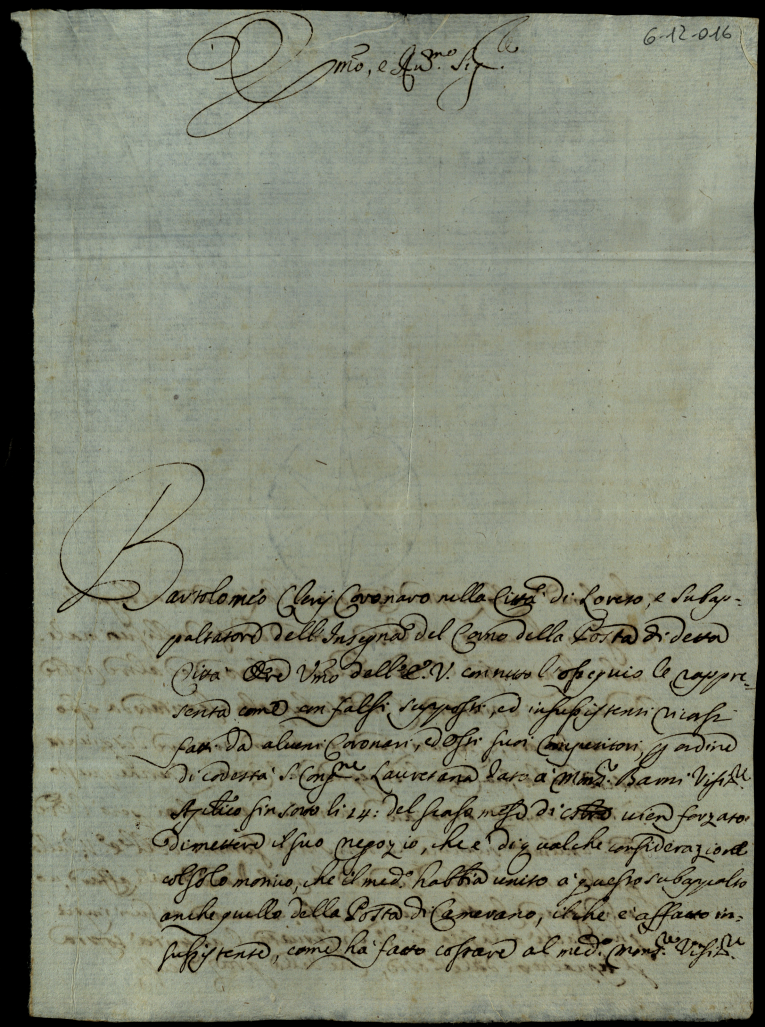 6-12-016
Ill.mo, e R.mo Sig.re
Bartolomeo Clerij Coronaro nella Città di Loreto, e subap-
paltatore dell'Insegna del Corno della Posta di detta
Città Ore Umo dell'E. V. con tutto l'ossequio le rappre-
senta come con falsi supposti, ed insussistenti ricorsi
fatti da alcuni Coronari, ed Osti suoi Competitori, p ordine
di codesta S. Cong.ne Lauretana dato à Mons.r Barni Visit.re
Aplico sin sotto li 14: del scaso mese di vien forzato
dimettere il suo negozio, che è di qualche considerazione
col solo motivo, che il med.o habbia unito à questo subappalto
anche quello della Posta di Camerano, il che è affatto in-
sussistente, come hà fatto costare al med.o Mons.re Visit.re